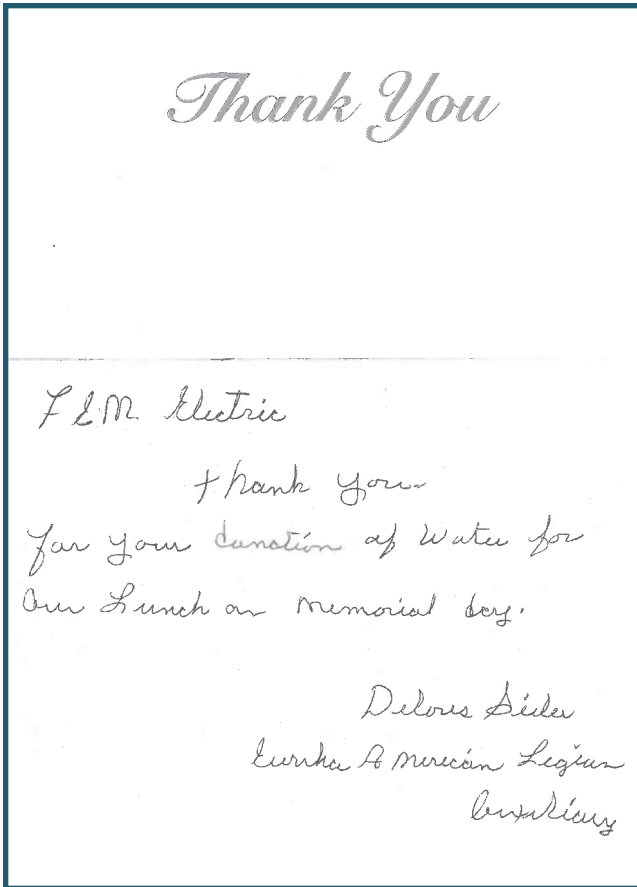 Thank You
FEM Electric
Thank you
for your donation of Water for
Our Lunch on Memorial day.
Delores
Eureka American Legion
Auxiliary